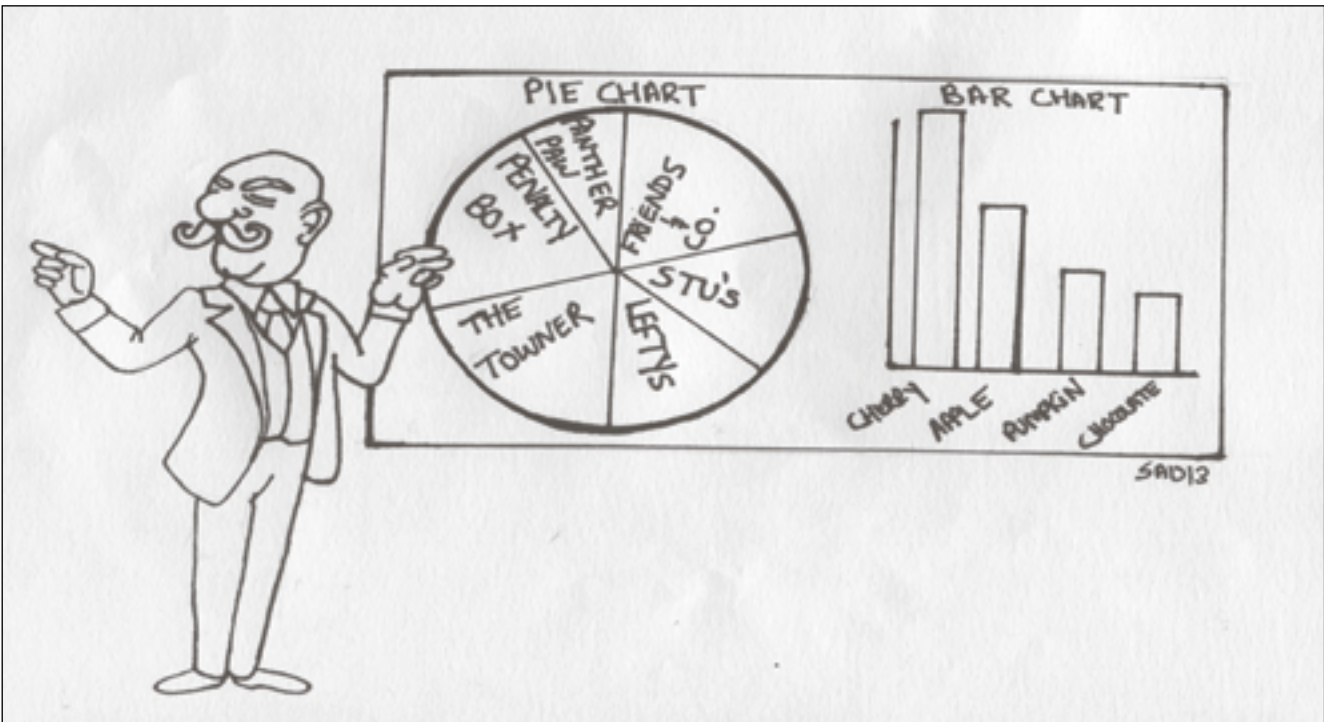 PIE CHART
PANTHER
PAW
PENALTY
BOX
FRIENDS
& CO.
STU'S
LEFTYS
THE
TOWNER
BAR CHART
CHERRY
APPLE
PUMPKIN
CHOCOLATE
SAD13